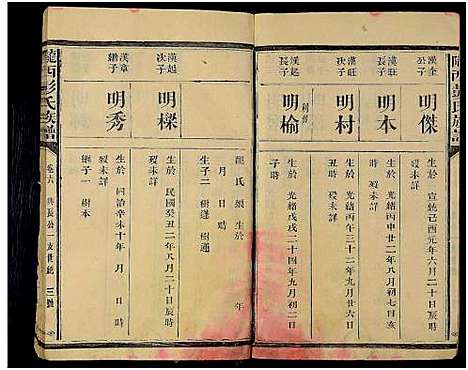 隴西彭氏族譜
漢金
公子
明傑
生於 宣統己酉元年六月
歿未詳
漢旺
長子
明本
生於 光緒丙申廿二年八月初七日亥
時 歿未詳
漢旺
次子
明村
生於 光緒丙午三十二年九月初二日
丑時 歿未詳
漢起
長子
明榆
生於 光緒戊戌二十四年九月初二日
子時
龍氏 須生於 年
月 日 時
生子二 樹蓮 樹通
漢起
次子
明樑
生於 民國癸丑二年八月二十日辰時
歿未詳
漢章
繼子
明秀
生於 同治辛未十年 月 日 時
歿未詳
繼子一 樹本
隴西彭氏族譜
卷六 興長公一支世系 三號